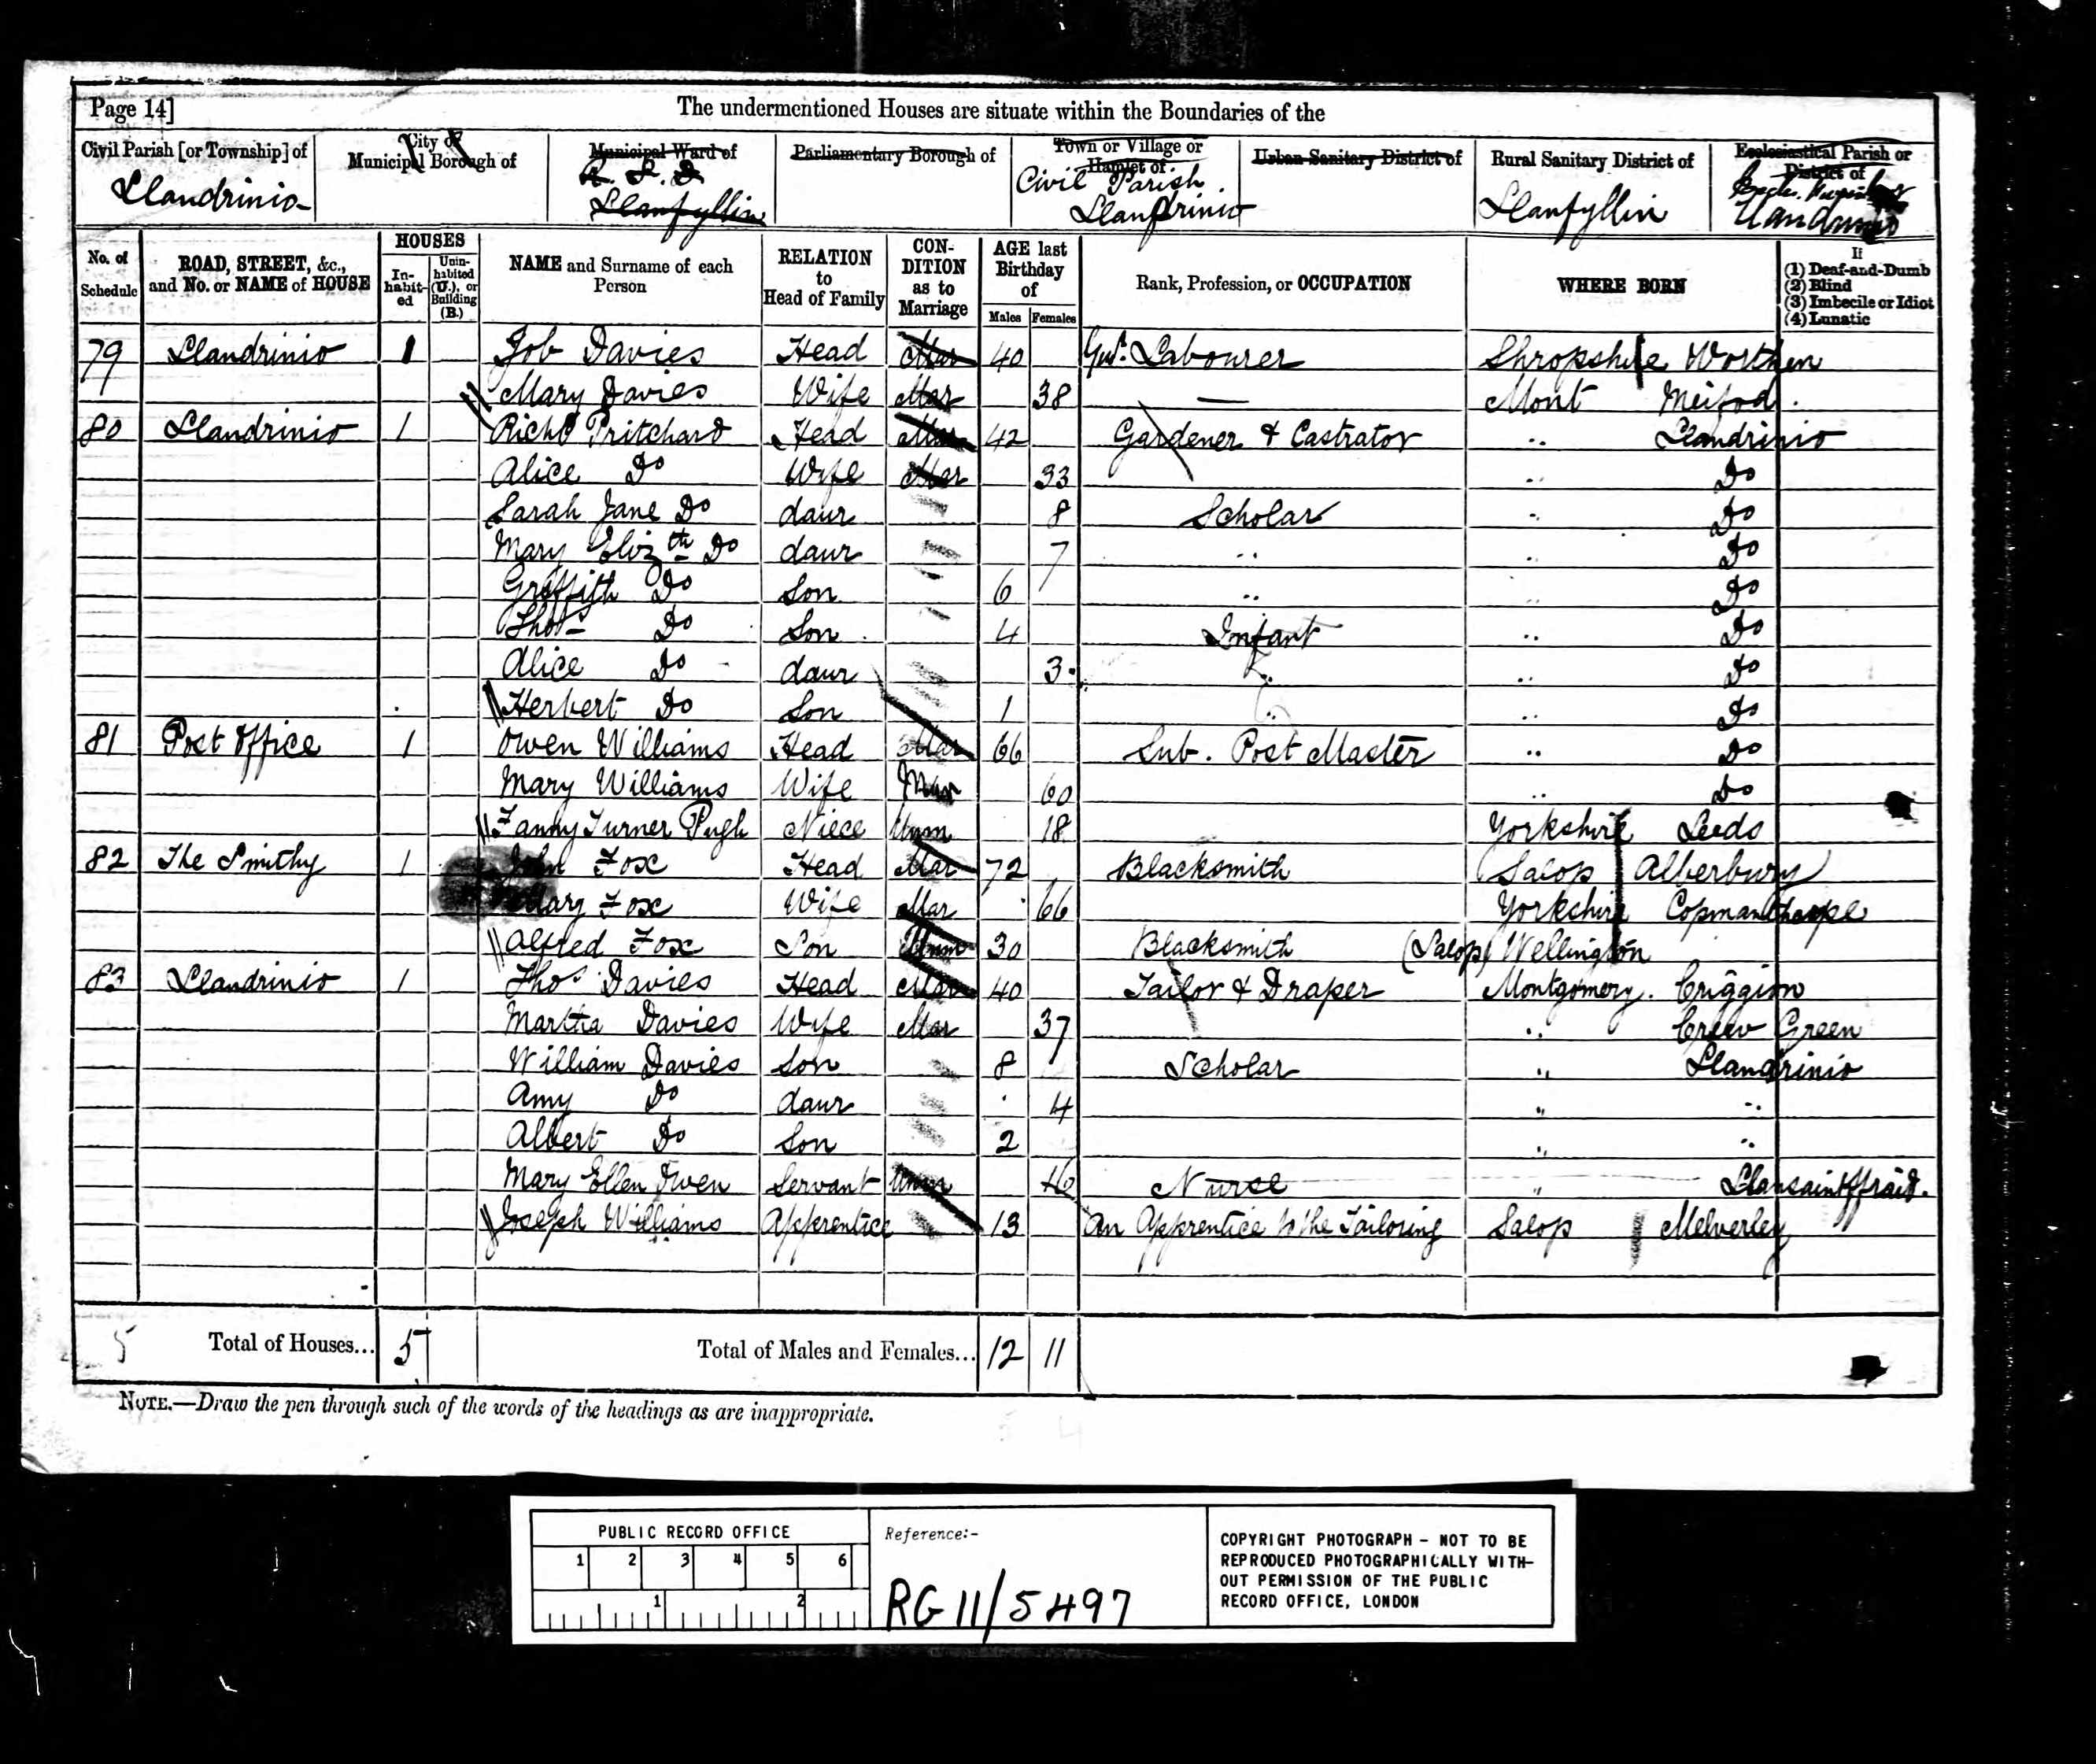 Page 14]
The undermentioned Houses are situate within the Boundaries of the
Civil Parish [or Township] of
Llandrinio
City or
Municipal Borough of
Municipal Ward of
R. S. D
Llanfyllin
Parliamentary Borough of
Town or Village or
Hamlet of
Civil Parish
Llandrinio
Urban Sanitary District of
Rural Sanitary District of
Llanfyllin
Ecclesiastical Parish or
District of
Llandrinio
No. of Schedule
ROAD, STREET, &c., and No. or NAME of HOUSE
HOUSES
In-habit-ed
Unin-habited (U.), or Building (B.)
NAME and Surname of each Person
RELATION to Head of Family
CON-DITION as to Marriage
AGE last Birthday of
Males Females
Rank, Profession, or OCCUPATION
WHERE BORN
If
(1) Deaf-and-Dumb
(2) Blind
(3) Imbecile or Idiot
(4) Lunatic
79 Llandrinio 1 Job Davies Head Mar 40 Labourer Shropshire Worthen
Mary Davies Wife Mar 38 — Mont Meifod
80 Llandrinio 1 Richd Pritchard Head Mar 42 Gardener & Castrator .. Llandrinio
Alice Do Wife Mar 33 .. Do
Sarah Jane Do daur 8 Scholar .. Do
Mary Elizth Do daur 7 .. .. Do
Griffith Do Son 6 .. .. Do
Thos Do Son 4 Infant .. Do
Alice Do daur 3 .. .. Do
Herbert Do Son 1 .. .. Do
81 Post Office 1 Owen Williams Head Mar 66 Sub. Post Master .. Do
Mary Williams Wife Mar 60 .. Do
Fanny Turner Pugh Niece Unm 18 Yorkshire Leeds
82 The Smithy 1 John Fox Head Mar 72 Blacksmith Salop Alberbury
Mary Fox Wife Mar 66 Yorkshire Copmanthorpe
Alfred Fox Son Unm 30 Blacksmith (Salop) Wellington
83 Llandrinio 1 Thos Davies Head Mar 40 Tailor & Draper Montgomery. Criggion
Martha Davies Wife Mar 37 .. Crew Green
William Davies Son 8 Scholar .. Llandrinio
Amy Do daur 4 .. ..
Albert Do Son 2 .. ..
Mary Ellen Owen Servant Unm 16 Nurse .. Llansaintffraid.
Joseph Williams Apprentice 13 An Apprentice to the Tailoring Salop Melverley
5 Total of Houses... 5 Total of Males and Females... 12 11
NOTE.—Draw the pen through such of the words of the headings as are inappropriate.
PUBLIC RECORD OFFICE
1 2 3 4 5 6
1 2
Reference:-
RG 11/5497
COPYRIGHT PHOTOGRAPH - NOT TO BE
REPRODUCED PHOTOGRAPHICALLY WITH-
OUT PERMISSION OF THE PUBLIC
RECORD OFFICE, LONDON